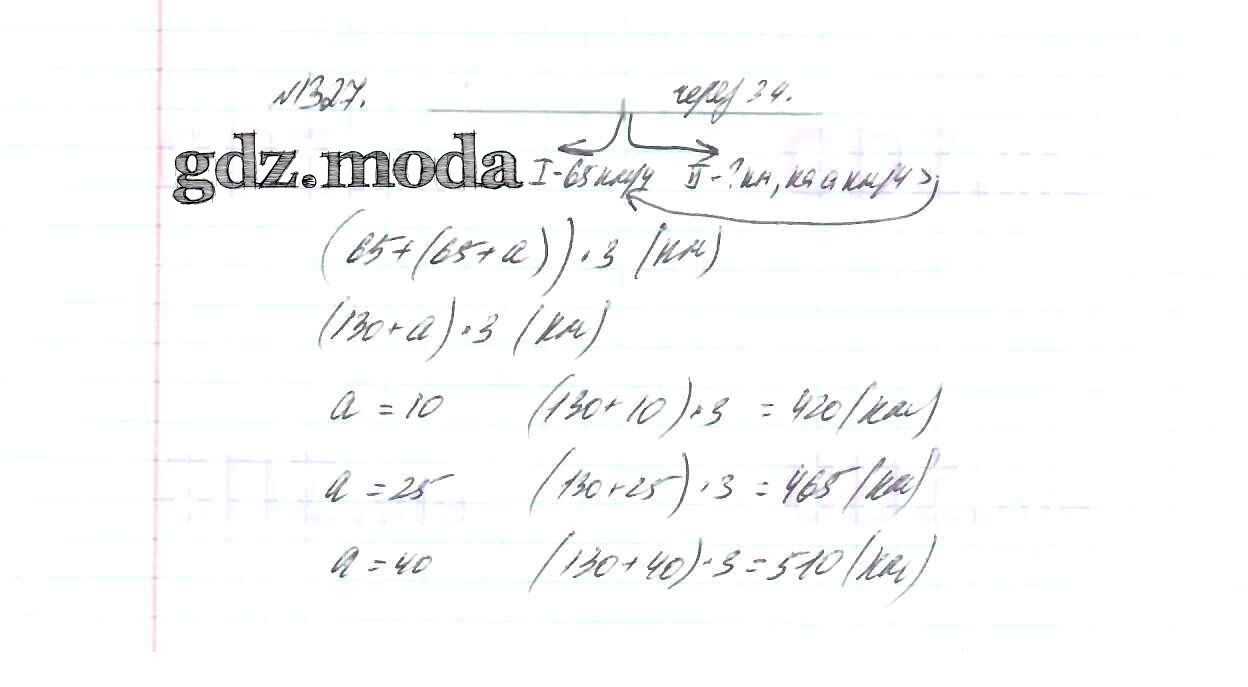 №1327.
через 3 ч.
gdz.moda
I - 65 км/ч II - ? км, на a км/ч >
(65+(65+a))·3 (км)
(130+a)·3 (км)
a = 10 (130+10)·3 = 420 (км)
a = 25 (130+25)·3 = 465 (км)
a = 40 (130+40)·3 = 510 (км)